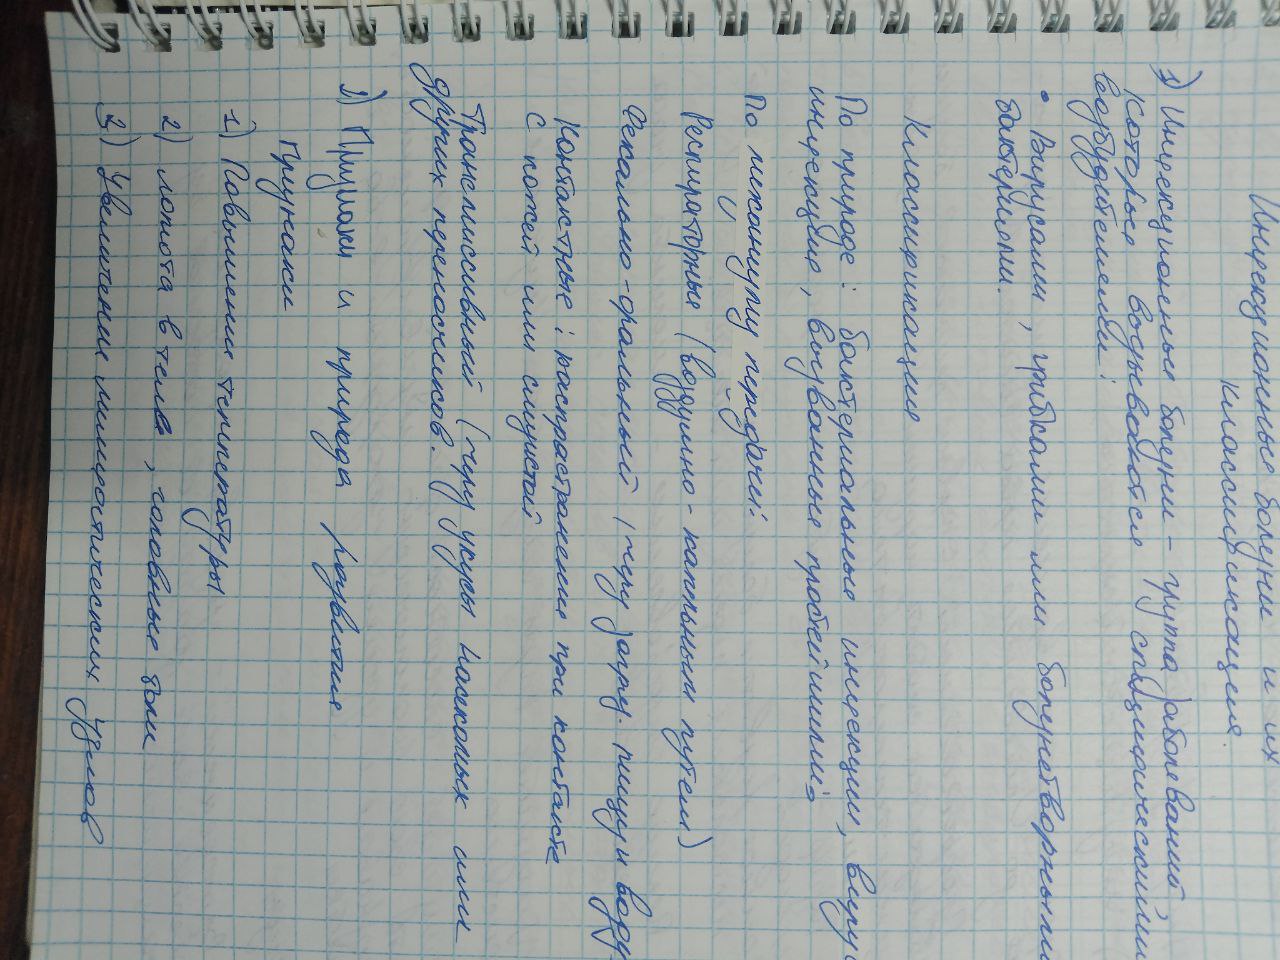 Инфекционные болезни и их
Классификация.
1) Инфекционные болезни - группа заболеваний,
которые возрываются специфическими
возбудителями:
• Вирусами, грибками или болезнетворными
бактериями.
Классификация
По природе: бактериальные инфекции, виру
инфекции, вызванные простейшими.
По механизму передачи:
Респираторные (воздушно-капельным путем)
Фекально-оральный (через загр. пищу и воду
Контактные: распрастранение при контакте
с кожей или слизистой
Трансмиссивный (через укусы насекомых или
других переносчиков.
2) Признаки и природа развития
Признаки
1) Повышении температуры
2) ломота в теле, головные боли
3) Увеличении лимфотических узлов